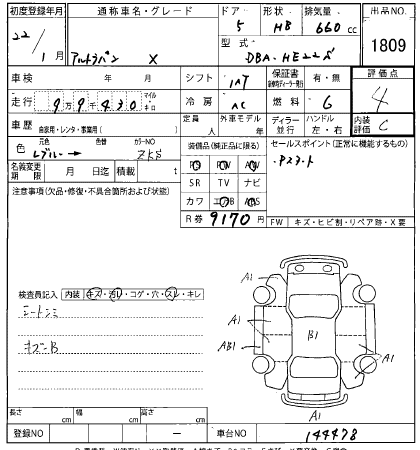 初度登録年月 通称車名・グレード ドア 形状 排気量 出品NO
22/1月 アルトラパン X 5 HB 660cc 1809
型式 DBA-HE22S
車検 年 月 シフト IAT 保証書 有・無 評価点
走行 99430 マイル キロ 冷房 AC 燃料 G 4
車歴 自家用・レンタ・事業用( ) 定員 人 外車モデル 年 ディーラー 並行 ハンドル 左・右 内装評価 C
色 元色 色替 カラーNO ZKS 装備品(純正品に限る) セールスポイント(正常に機能するもの)
名義変更期限 月 日迄 積載 t PS PW AW
SR TV ナビ
注意事項(欠品・修復・不具合箇所および状態) カワ エアB ABS
R券 9170円 FW キズ・ヒビ割・リペア跡・X要
検査員記入 内装 キズ・汚レ・コゲ・穴・スレ・キレ
A1
A1 A1
AB1 B1 A1
A1
長さ cm 幅 cm 高さ cm
登録NO ー 車台NO 144478